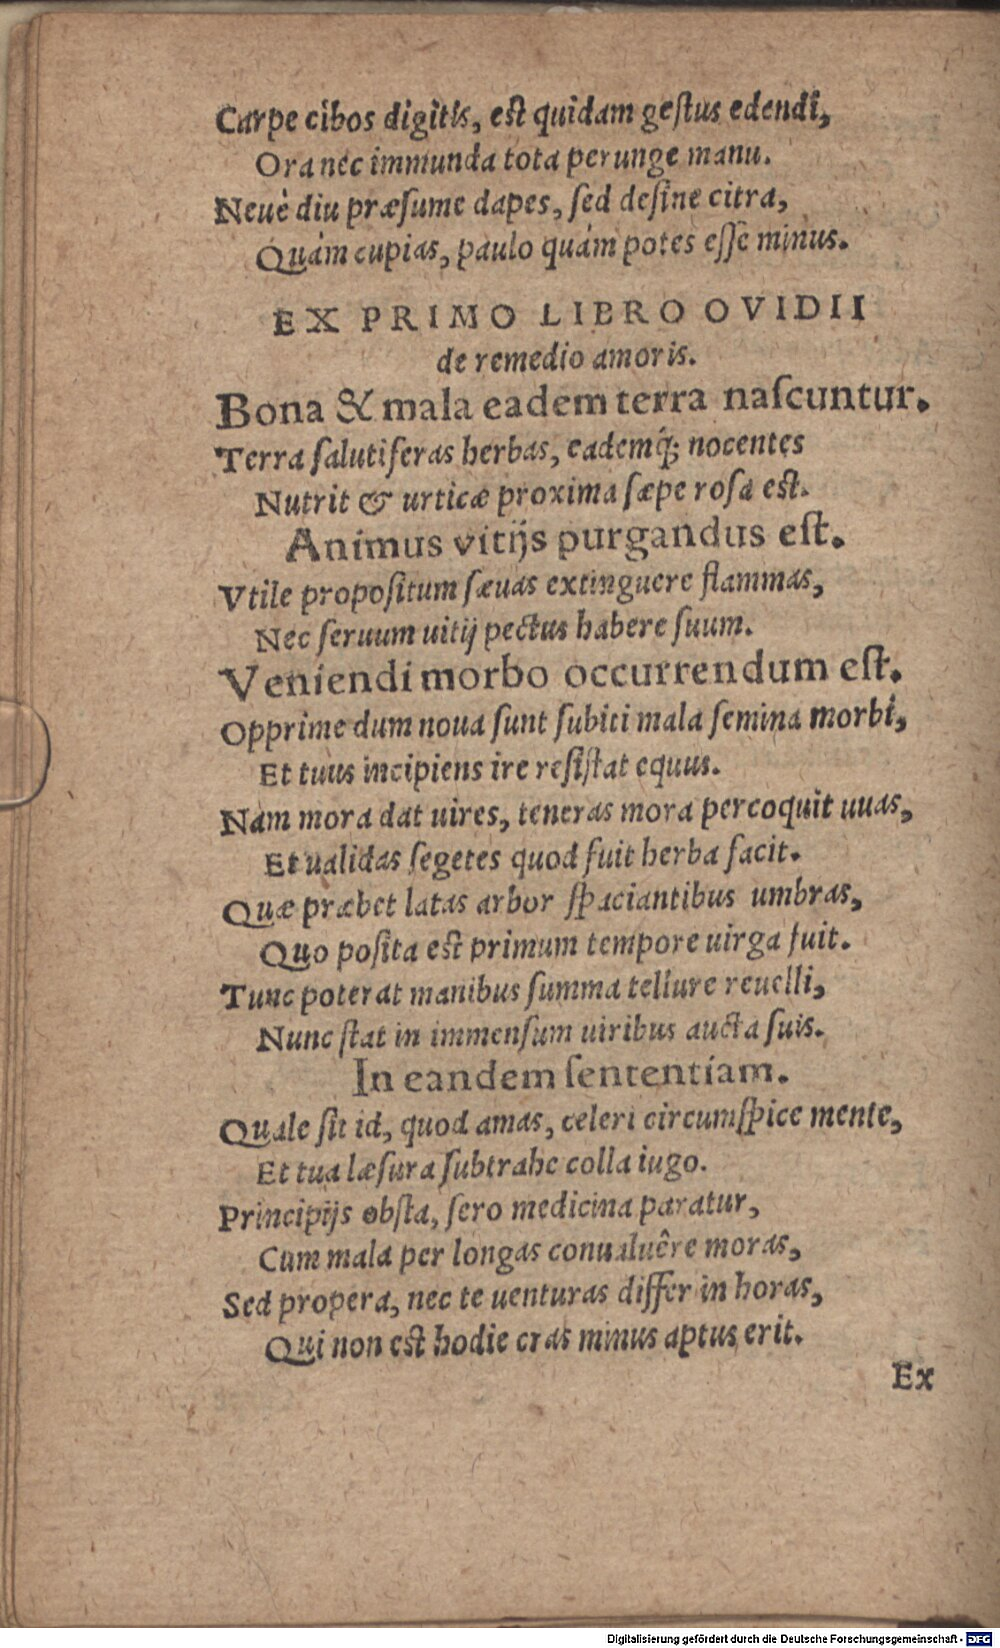 Carpe cibos digitis, est quidam gestus edendi,
Ora nec immunda tota perunge manu.
Neuè diu præsume dapes, sed desine citra,
Quàm cupias, paulo quàm potes esse minus.
EX PRIMO LIBRO OVIDII
de remedio amoris.
Bona & mala eadem terra nascuntur.
Terra salutiferas herbas, eademq́; nocentes
Nutrit & urticæ proxima sæpe rosa est.
Animus vitijs purgandus est.
Vtile propositum sæuas extinguere flammas,
Nec seruum uitij pectus habere suum.
Veniendi morbo occurrendum est.
Opprime dum noua sunt subiti mala semina morbi,
Et tuus incipiens ire resistat equus.
Nam mora dat uires, teneras mora percoquit uuas,
Et ualidas segetes quod fuit herba facit.
Quæ præbet latas arbor spaciantibus umbras,
Quo posita est primum tempore uirga fuit.
Tunc poterat manibus summa tellure reuelli,
Nunc stat in immensum uiribus aucta suis.
In eandem sententiam.
Quale sit id, quod amas, celeri circumspice mente,
Et tua læsura subtrahe colla iugo.
Principijs obsta, sero medicina paratur,
Cum mala per longas conualuêre moras,
Sed propera, nec te uenturas differ in horas,
Qui non est hodie cras minus aptus erit.
Ex
Digitalisierung gefördert durch die Deutsche Forschungsgemeinschaft - DFG